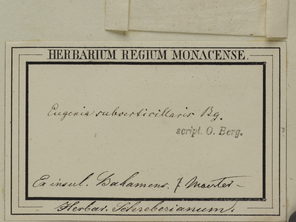 HERBARIUM REGIUM MONACENSE.
Eugenia subverticillaris Bg.
script. O. Berg.
E insul. Bahamens. J
Herbar. Schreberianum.